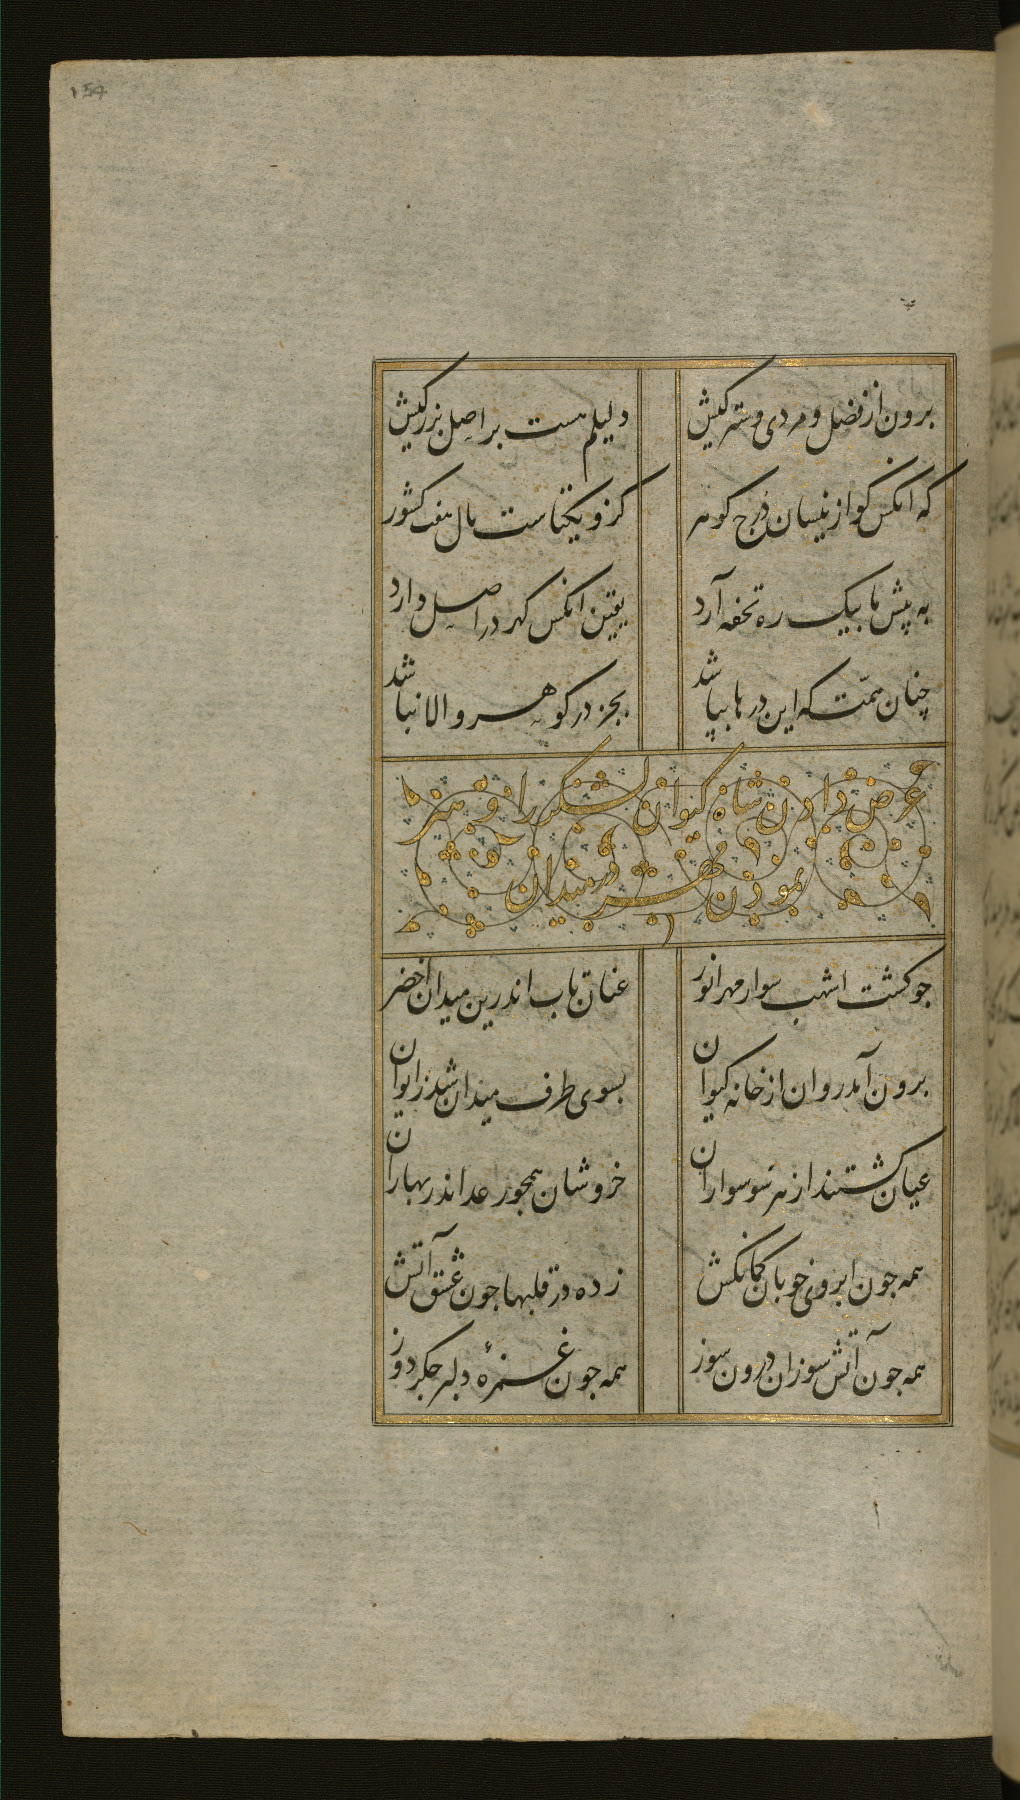 154
برون از فضل و مردی و سترکیش
دلیلم هست بر اصل بزرکیش
که انکس کو از نیسان درج کوهر
کزو یکتاست مال هفت کشور
به پیش ما بیک ره تحفه آرد
یقین انکس کهر در اصل دارد
چنان همّت که این درها بپاشد
بجز در کوهر والا نباشد
عرض دادن شاه کیوان لشکر را و هنر
نمودن مهر در میدان
جو کشت اشهب سوار مهر انور
عنان تاب اندرین میدان اخضر
برون آمد روان از خانه کیوان
بسوی طرف میدان شد ز ایوان
عیان کشتند از هر سو سواران
خروشان همجو رعد اندر بهاران
همه جون ابروی خوبان کمانکش
زده در قلبها جون عشق آتش
همه جون آتش سوزان درون سوز
همه جون غمزهٔ دلبر جکر دوز